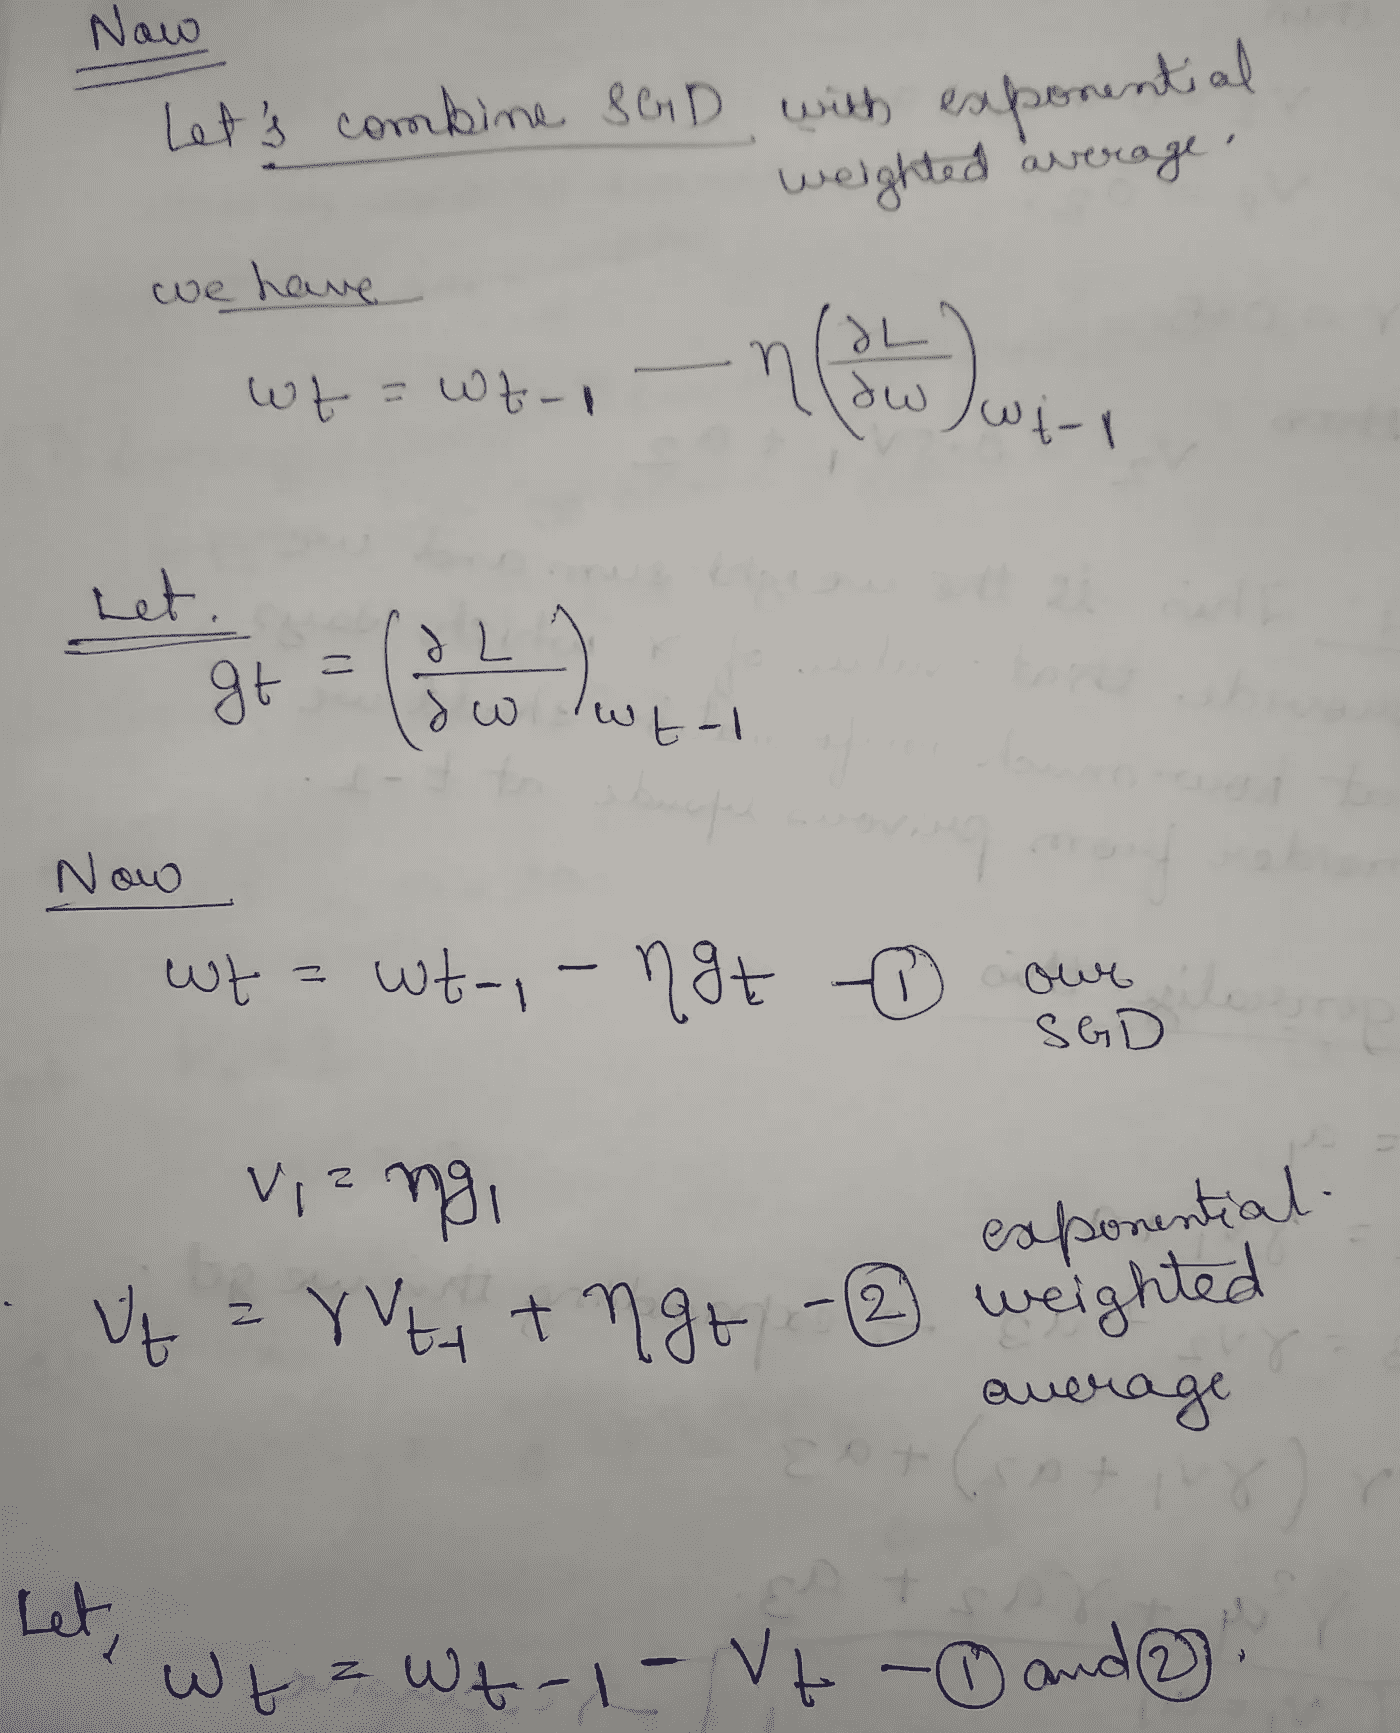 Now
Let's combine SGD with exponential
weighted average.
we have
wt = wt-1 — η(∂L/∂w)wt-1
Let.
gt = (∂L/∂w)wt-1
Now
wt = wt-1 - ηgt -① our
SGD
v1 = ηg1
vt = γvt-1 + ηgt -② exponential
weighted
average
Let,
wt = wt-1 - vt -① and ②.